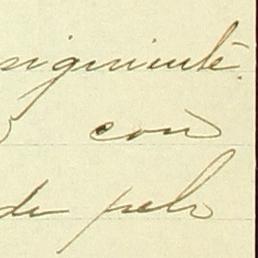 siguiente.
con
de pelo